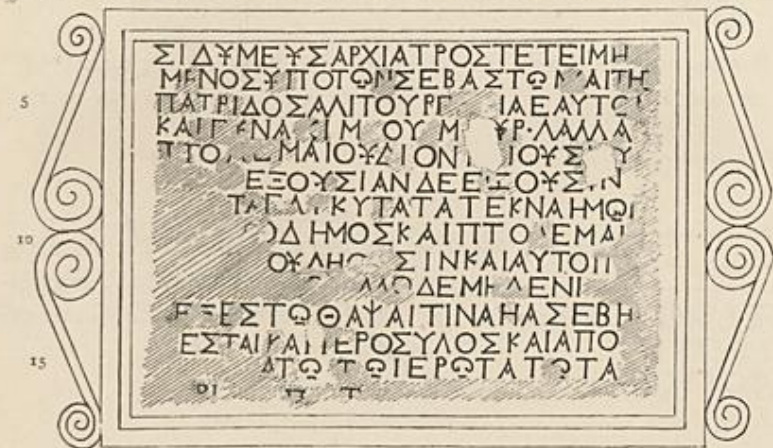 ΣΙΔΥΜΕΥΣΑΡΧΙΑΤΡΟΣΤΕΤΕΙΜΗ
ΜΕΝΟΣΥΠΟΤΩΝΣΕΒΑΣΤΩΝΚΑΙΤΗ
5 ΠΑΤΡΙΔΟΣΑΛΙΤΟΥΡΓ ΙΑΕΑΥΤΩ
ΚΑΙΓ ΝΑΙΚΙΜ ΟΥ Μ ΥΡ·ΛΑΛΛΑ
ΠΤΟΛΕΜΑΙΟΥΔΙΟΝ ΙΟΥΣ Υ
ΕΞΟΥΣΙΑΝΔΕΕΞΟΥΣΙΝ
ΤΑΓΛΥΚΥΤΑΤΑΤΕΚΝΑΗΜΩΙ
10 ΟΔΗΜΟΣΚΑΙΠΤΟΛΕΜΑΙ
ΟΥΛΗΣ ΣΙΝΚΑΙΑΥΤΟΙ
ΑΛΛΩΔΕΜΗΔΕΝΙ
ΕΞΕΣΤΩΘΑΨΑΙΤΙΝΑΗΑΣΕΒΗ
ΕΣΤΑΙΚΑΙΙΕΡΟΣΥΛΟΣΚΑΙΑΠΟ
15 ΑΤΩ ΤΩΙΕΡΩΤΑΤΩΤΑ